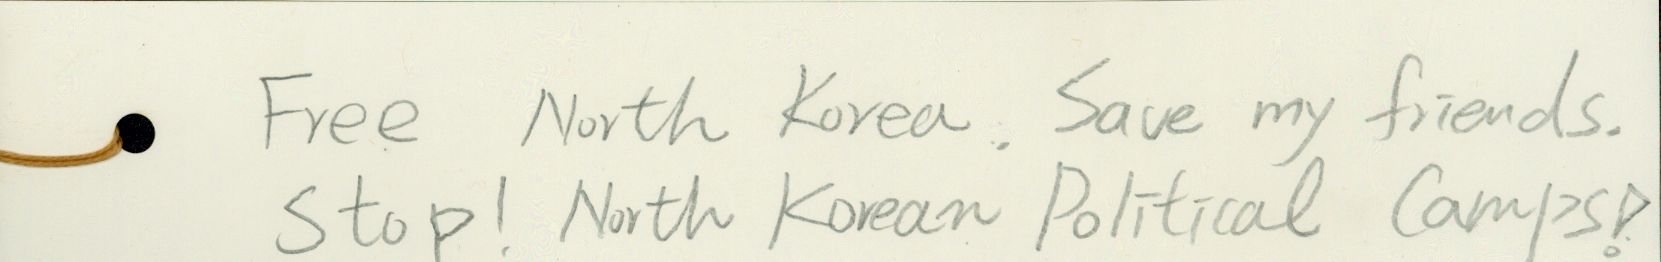 Free North Korea. Save my friends.
Stop! North Korean Political Camps!